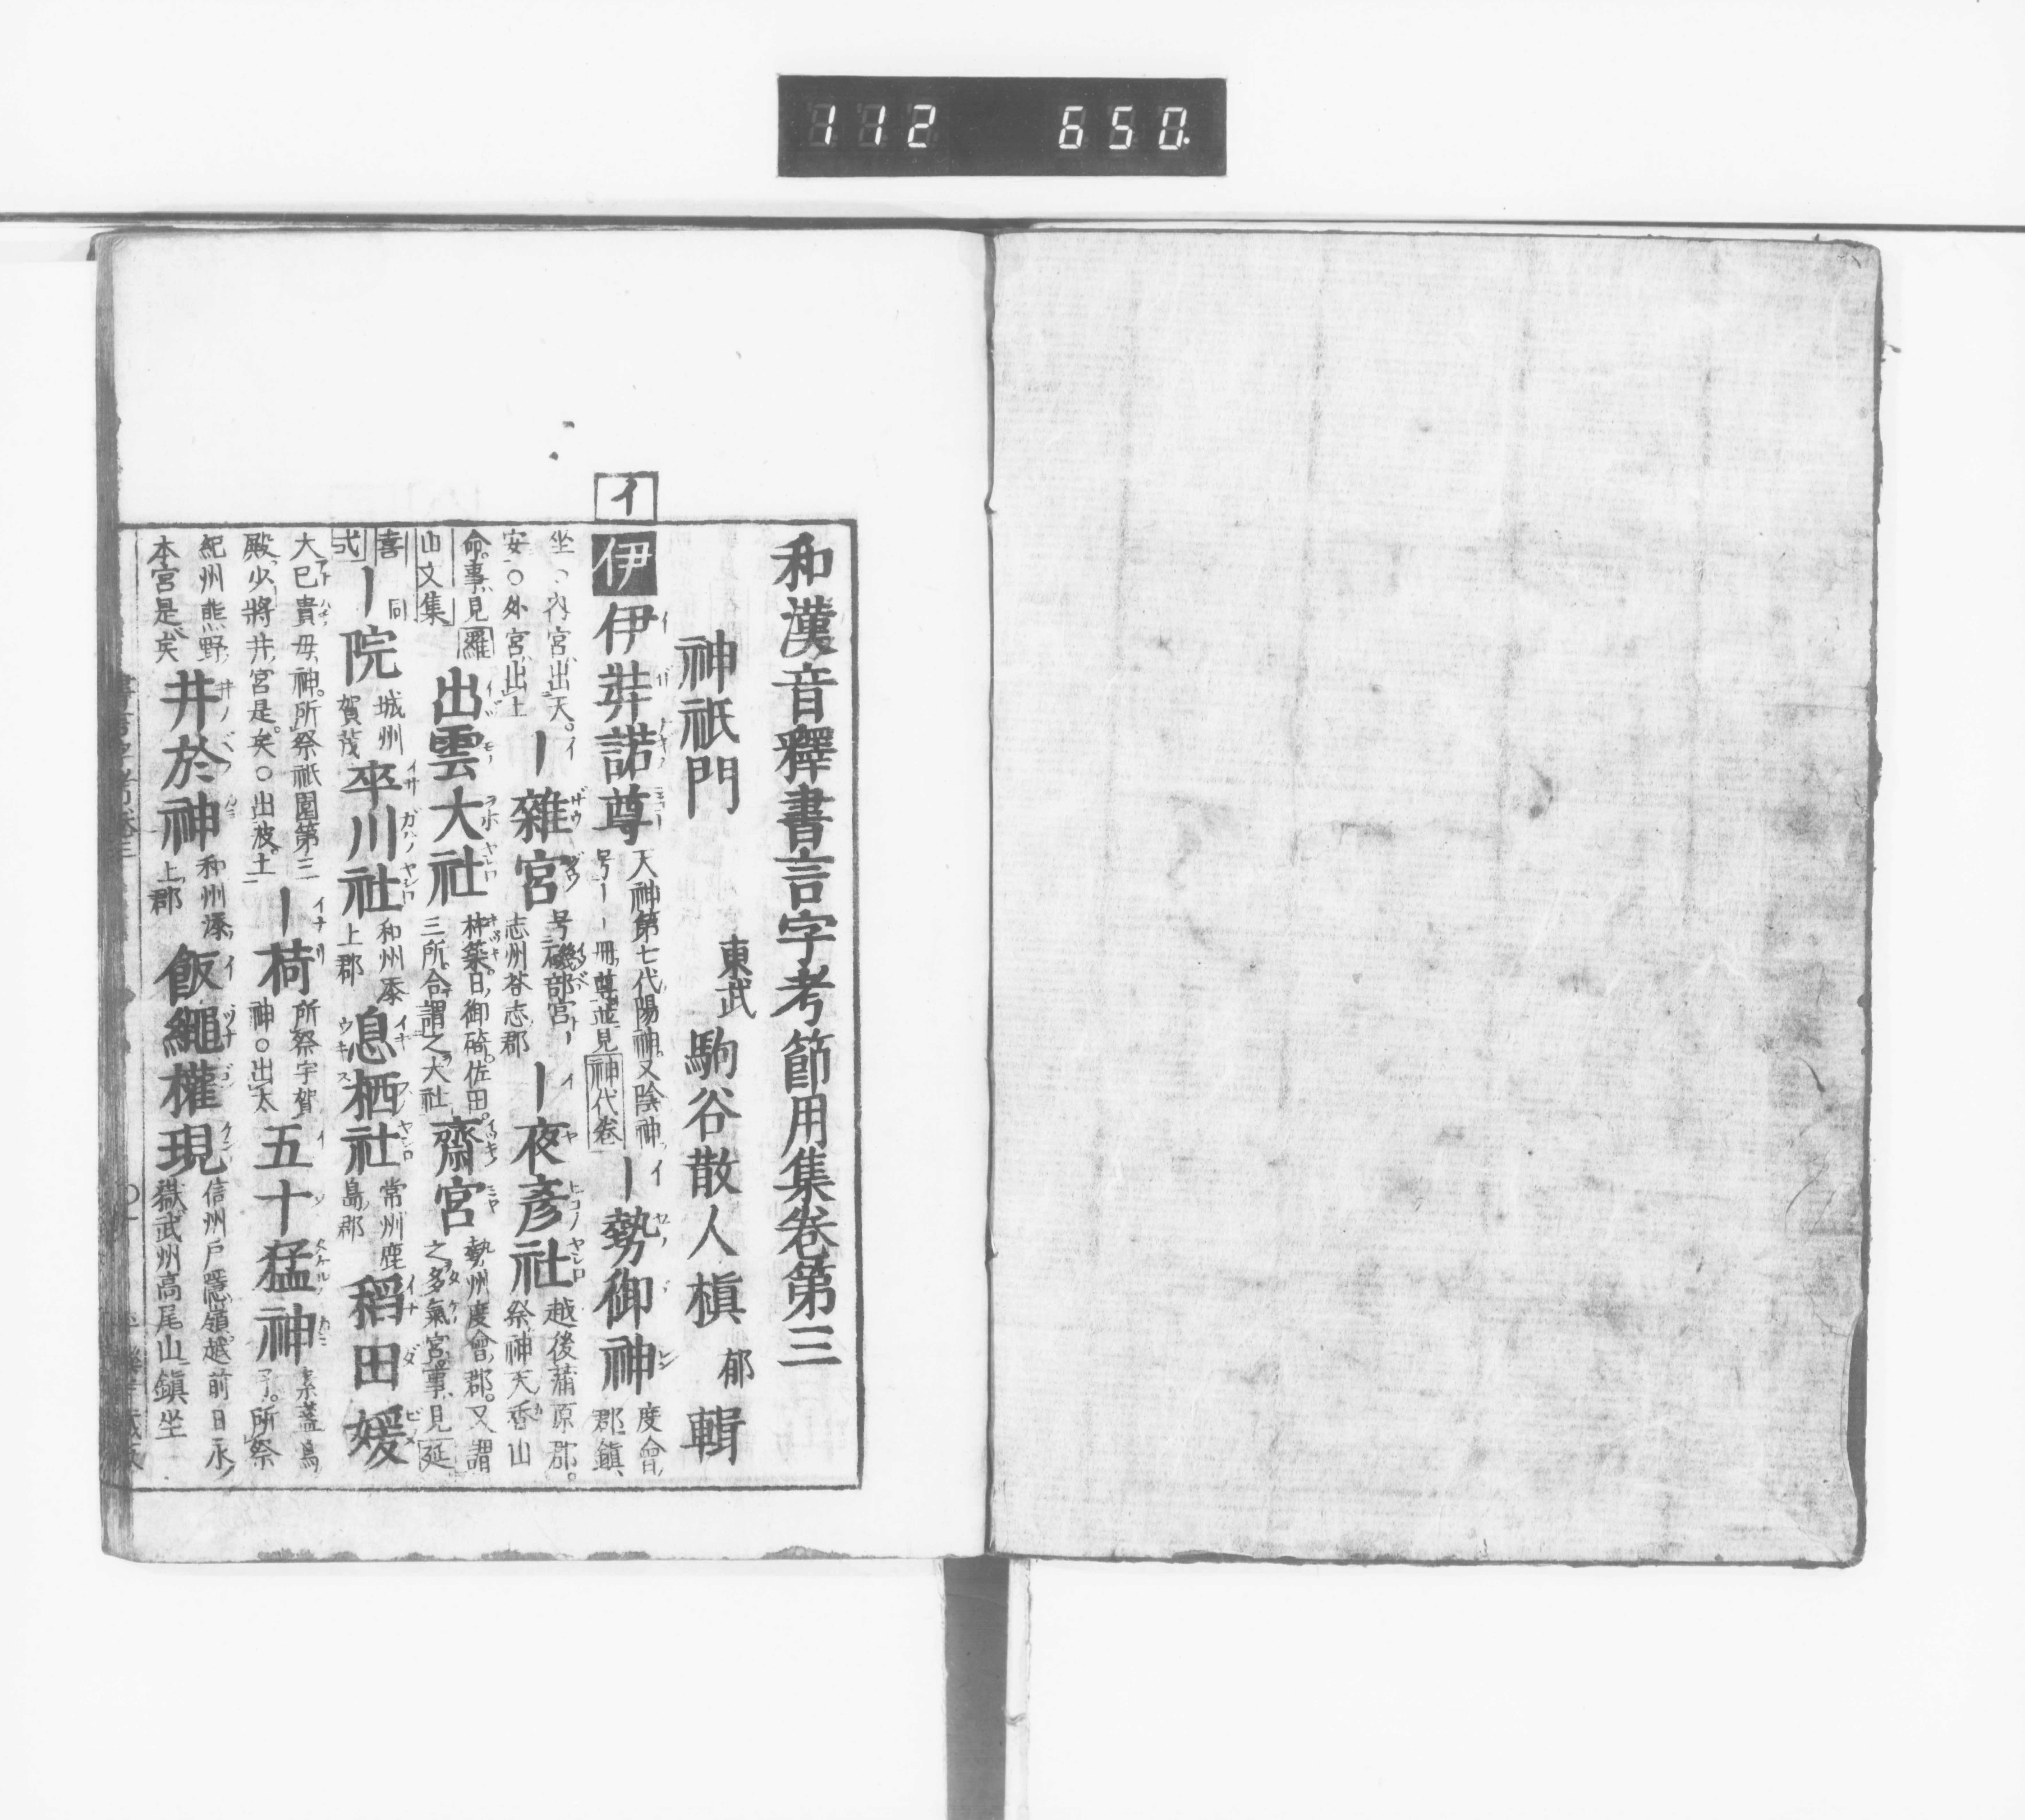 112 650
和漢音釋書言字考節用集卷第三
神祇門
東武 駒谷散人槇 郁 輯
イ
伊 伊弉諾尊 天神第七代陽神又陰神号ーー冊尊並見神代卷 ー勢御神 度會郡鎮
坐内宮出天安○外宮出土 ー雜宮 号磯部宮志州荅志郡 ー夜彥社 越後蒲原郡祭神天香山
命事見羅山文集 出雲大社 杵築日御碕佐田三所合謂之大社 齋宮 勢州度會郡又謂之多氣宮事見延
喜式 ー院 同城州賀茂 卒川社 和州添上郡 息栖社 常州鹿島郡 稻田媛
大巳貴母神所祭祇園第三殿少將井宮是矣○出波土 ー荷 所祭宇賀神○出太 五十猛神 素盞烏子所祭
紀州熊野本宮是矣 井於神 和州添上郡 飯繩權現 信州戶隱嶺越前日永嶽武州高尾山鎮坐